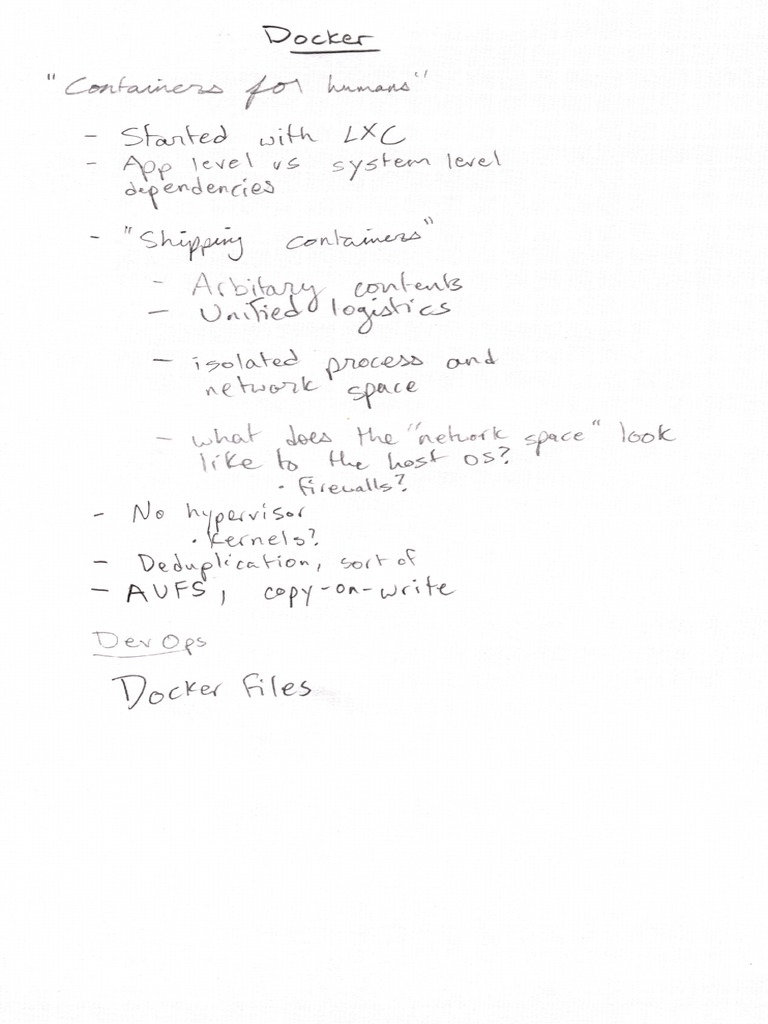 Docker
"Containers for humans"
- Started with LXC
- App level vs system level
dependencies
- "Shipping containers"
- Arbitary contents
- Unified logistics
- isolated process and
network space
- what does the "network space" look
like to the host os?
• firewalls?
- No hypervisor
• kernels?
- Deduplication, sort of
- AUFS, copy-on-write
DevOps
Docker files